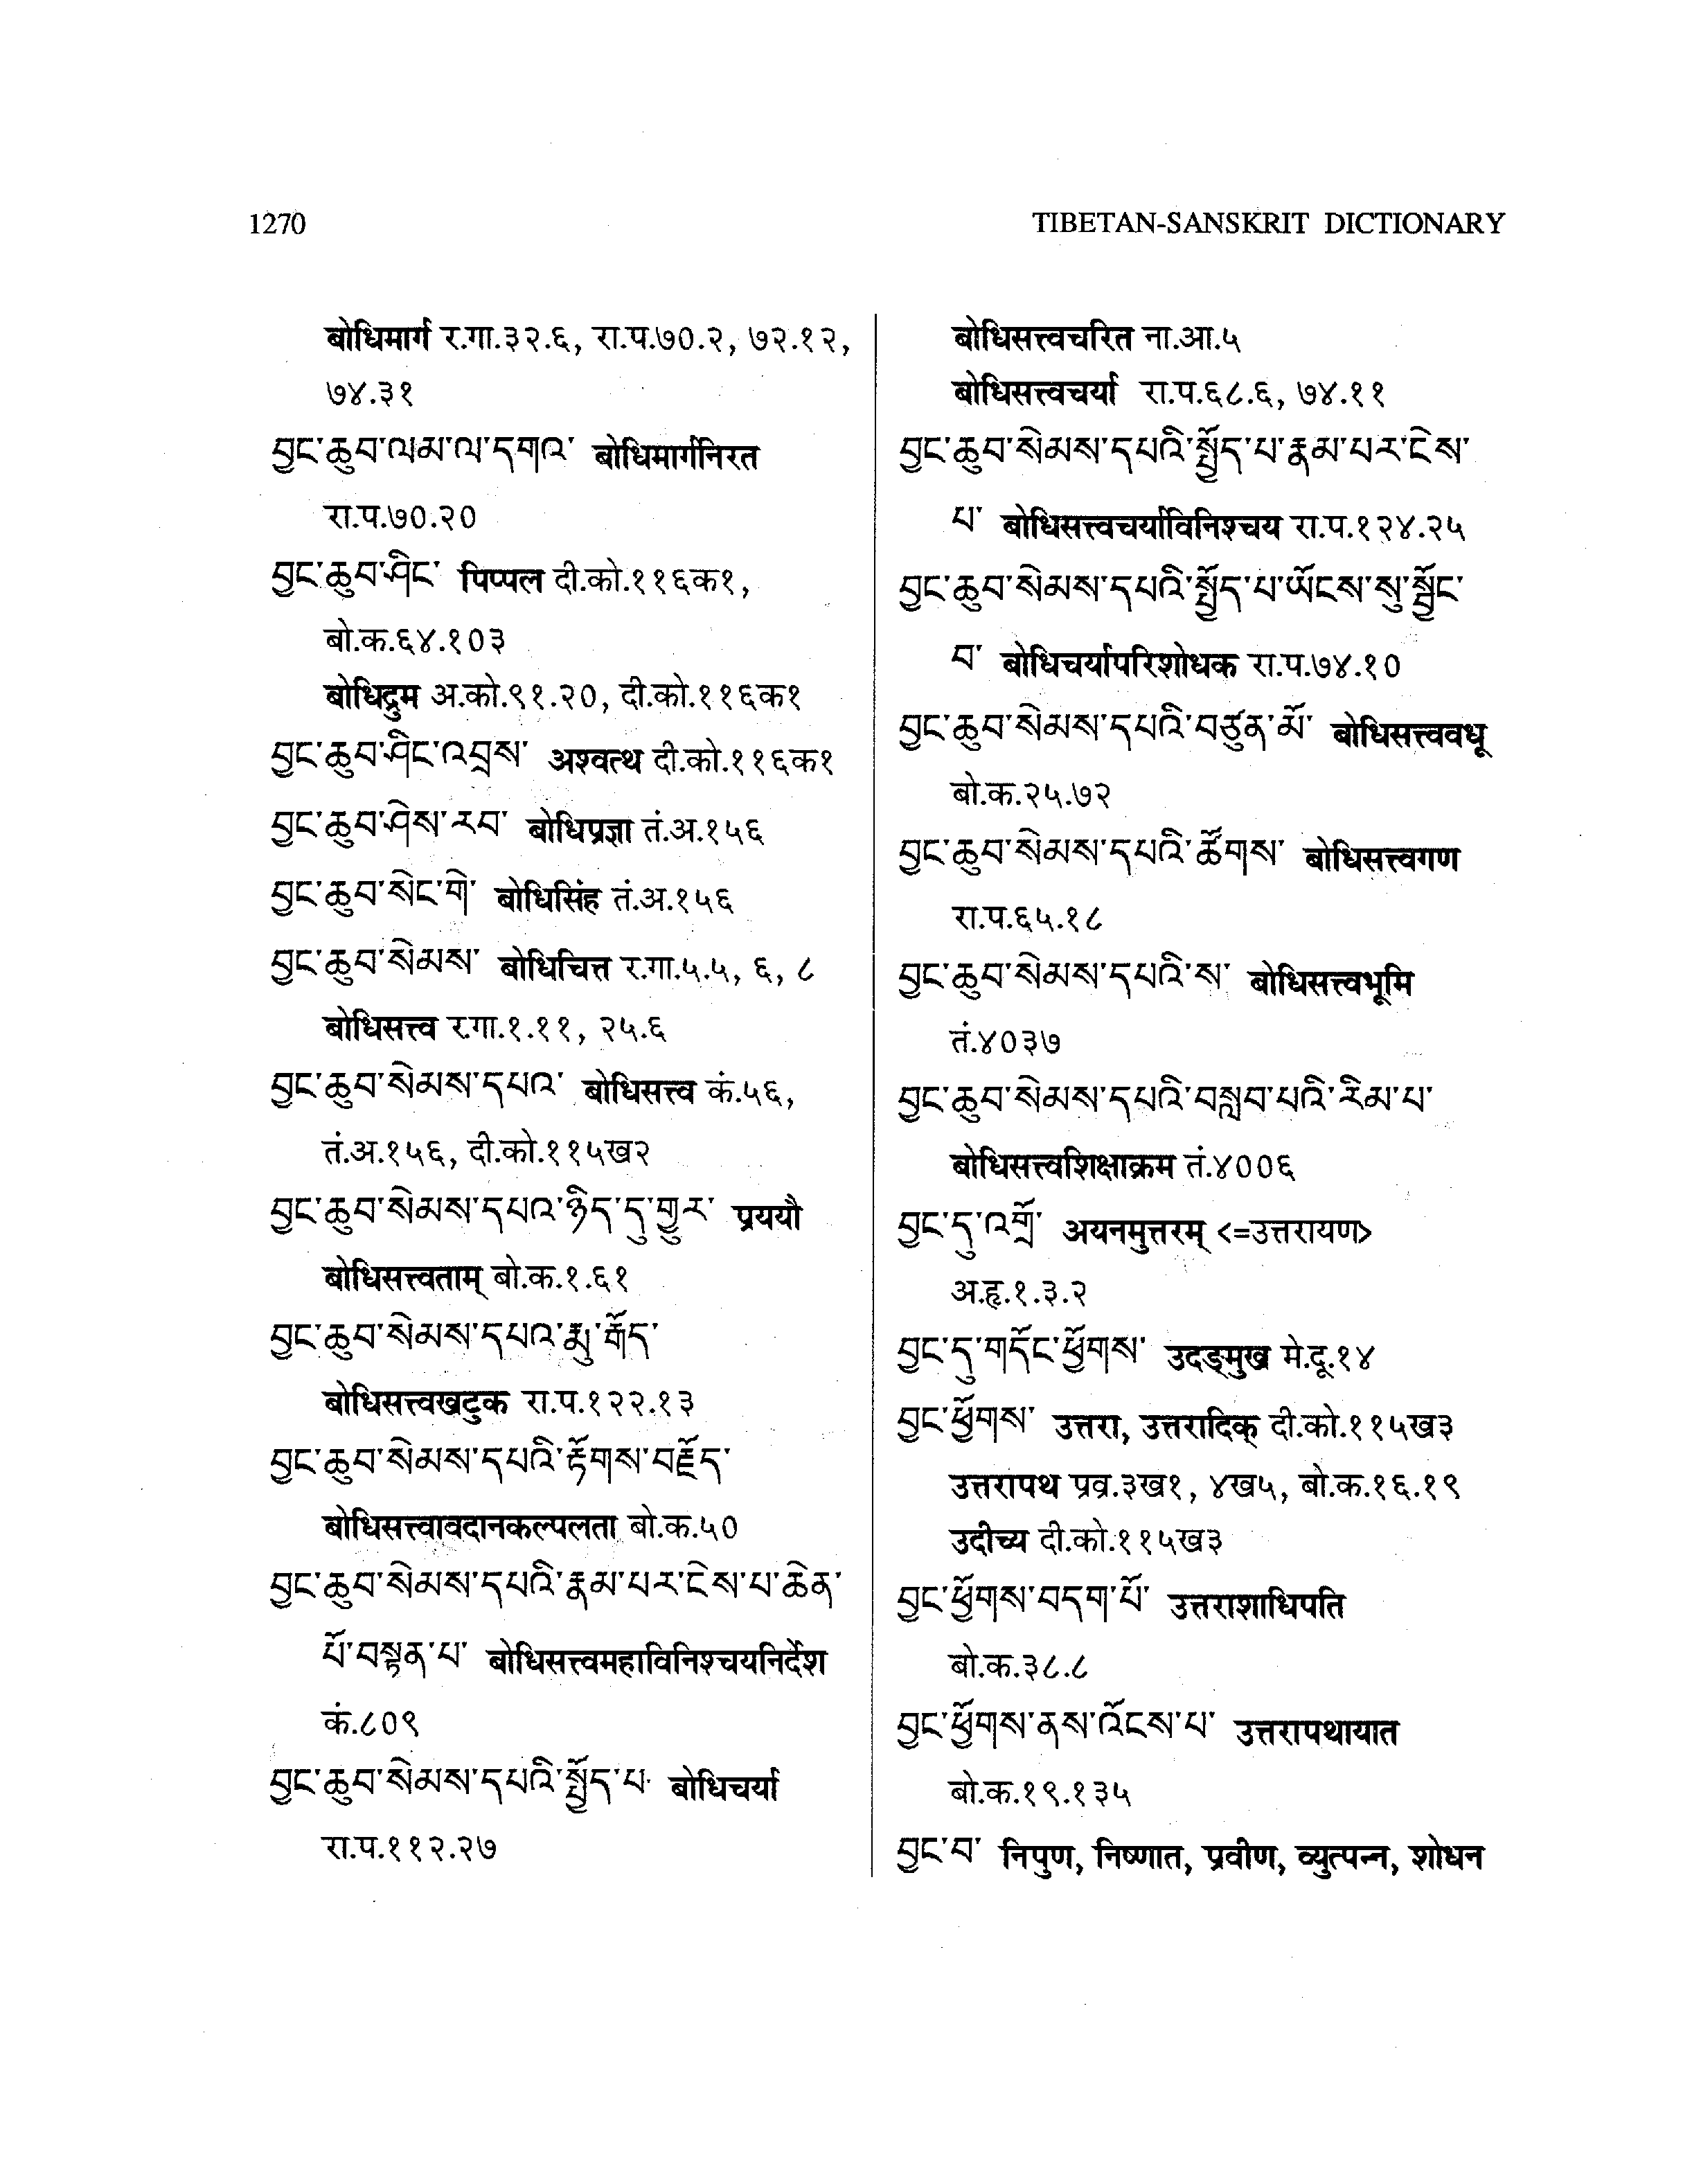 1270
TIBETAN-SANSKRIT DICTIONARY
बोधिमार्ग र.गा.३२.६, रा.प.७०.२, ७२.१२,
७४.३१
བྱང་ཆུབ་ལམ་ལ་དགའ་ बोधिमार्गनिरत
रा.प.७०.२०
བྱང་ཆུབ་ཤིང་ पिप्पल दी.को.११६क१,
बो.क.६४.१०३
बोधिद्रुम अ.को.९१.२०, दी.को.११६क१
བྱང་ཆུབ་ཤིང་འབྲས་ अश्वत्थ दी.को.११६क१
བྱང་ཆུབ་ཤེས་རབ་ बोधिप्रज्ञा तं.अ.१५६
བྱང་ཆུབ་སེང་གེ་ बोधिसिंह तं.अ.१५६
བྱང་ཆུབ་སེམས་ बोधिचित्त र.गा.५.५, ६, ८
बोधिसत्त्व र.गा.१.११, २५.६
བྱང་ཆུབ་སེམས་དཔའ་ बोधिसत्त्व कं.५६,
तं.अ.१५६, दी.को.११५ख२
བྱང་ཆུབ་སེམས་དཔའ་ཉིད་དུ་གྱུར་ प्रययौ
बोधिसत्त्वताम् बो.क.१.६१
བྱང་ཆུབ་སེམས་དཔའ་རྨུ་རྒོད་
बोधिसत्त्वखटुक रा.प.१२२.१३
བྱང་ཆུབ་སེམས་དཔའི་རྟོགས་བརྗོད་
बोधिसत्त्वावदानकल्पलता बो.क.५०
བྱང་ཆུབ་སེམས་དཔའི་རྣམ་པར་ངེས་པ་ཆེན་
པོ་བསྟན་པ་ बोधिसत्त्वमहाविनिश्चयनिर्देश
कं.८०९
བྱང་ཆུབ་སེམས་དཔའི་སྤྱོད་པ་ बोधिचर्या
रा.प.११२.२७
बोधिसत्त्वचरित ना.आ.५
बोधिसत्त्वचर्या रा.प.६८.६, ७४.११
བྱང་ཆུབ་སེམས་དཔའི་སྤྱོད་པ་རྣམ་པར་ངེས་
པ་ बोधिसत्त्वचर्याविनिश्चय रा.प.१२४.२५
བྱང་ཆུབ་སེམས་དཔའི་སྤྱོད་པ་ཡོངས་སུ་སྦྱོང་
བ་ बोधिचर्यापरिशोधक रा.प.७४.१०
བྱང་ཆུབ་སེམས་དཔའི་བཙུན་མོ་ बोधिसत्त्ववधू
बो.क.२५.७२
བྱང་ཆུབ་སེམས་དཔའི་ཚོགས་ बोधिसत्त्वगण
रा.प.६५.१८
བྱང་ཆུབ་སེམས་དཔའི་ས་ बोधिसत्त्वभूमि
तं.४०३७
བྱང་ཆུབ་སེམས་དཔའི་བསླབ་པའི་རིམ་པ་
बोधिसत्त्वशिक्षाक्रम तं.४००६
བྱང་དུ་འགྲོ་ अयनमुत्तरम् <=उत्तरायण>
अ.हृ.१.३.२
བྱང་དུ་གདོང་ཕྱོགས་ उदङ्मुख मे.दू.१४
བྱང་ཕྱོགས་ उत्तरा, उत्तरादिक् दी.को.११५ख३
उत्तरापथ प्रव्र.३ख१, ४ख५, बो.क.१६.१९
उदीच्य दी.को.११५ख३
བྱང་ཕྱོགས་བདག་པོ་ उत्तराशाधिपति
बो.क.३८.८
བྱང་ཕྱོགས་ནས་འོངས་པ་ उत्तरापथायात
बो.क.१९.१३५
བྱང་བ་ निपुण, निष्णात, प्रवीण, व्युत्पन्न, शोधन